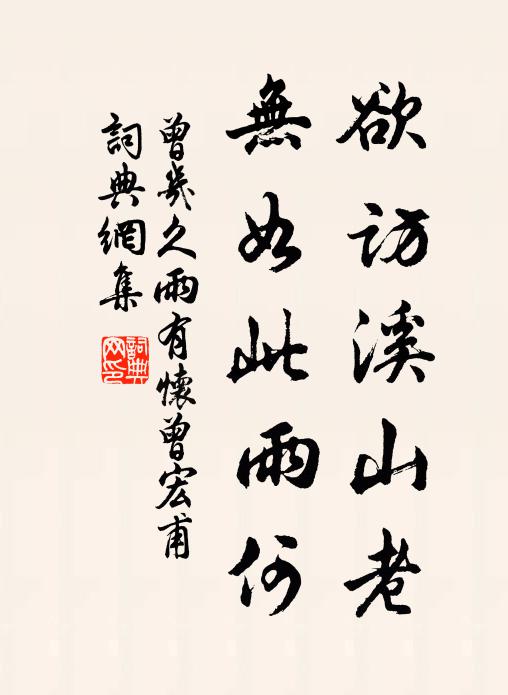 欲訪溪山老
無如此雨何
曾幾久雨有懷曾宏甫
詞典網集
詞典網印